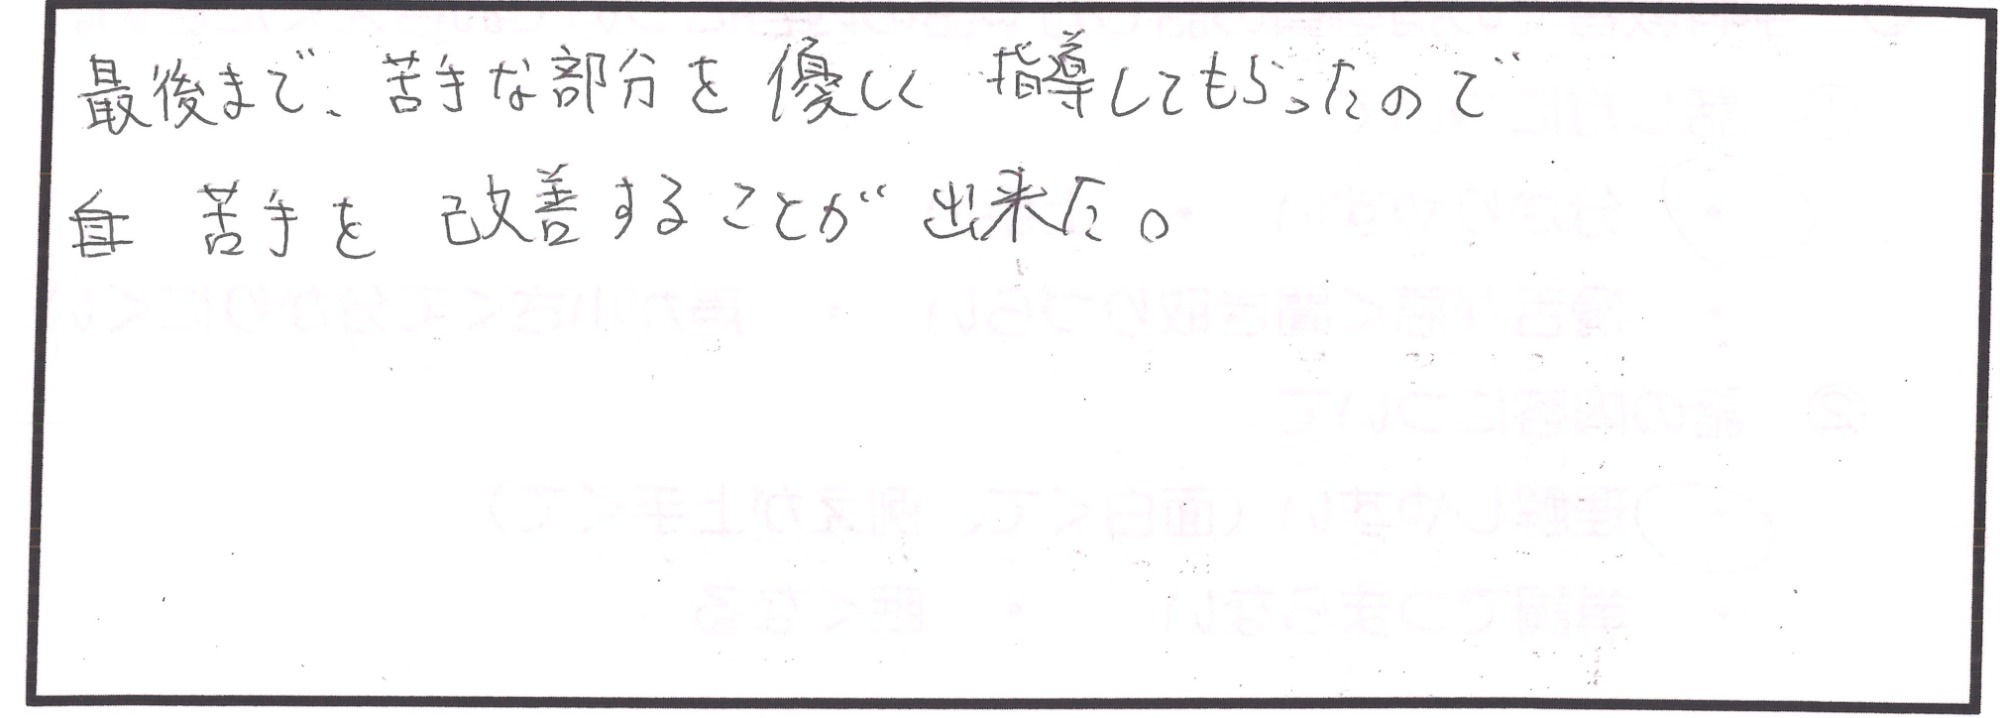 最後まで、苦手な部分を優しく指導してもらったので
苦手を改善することが出来た。